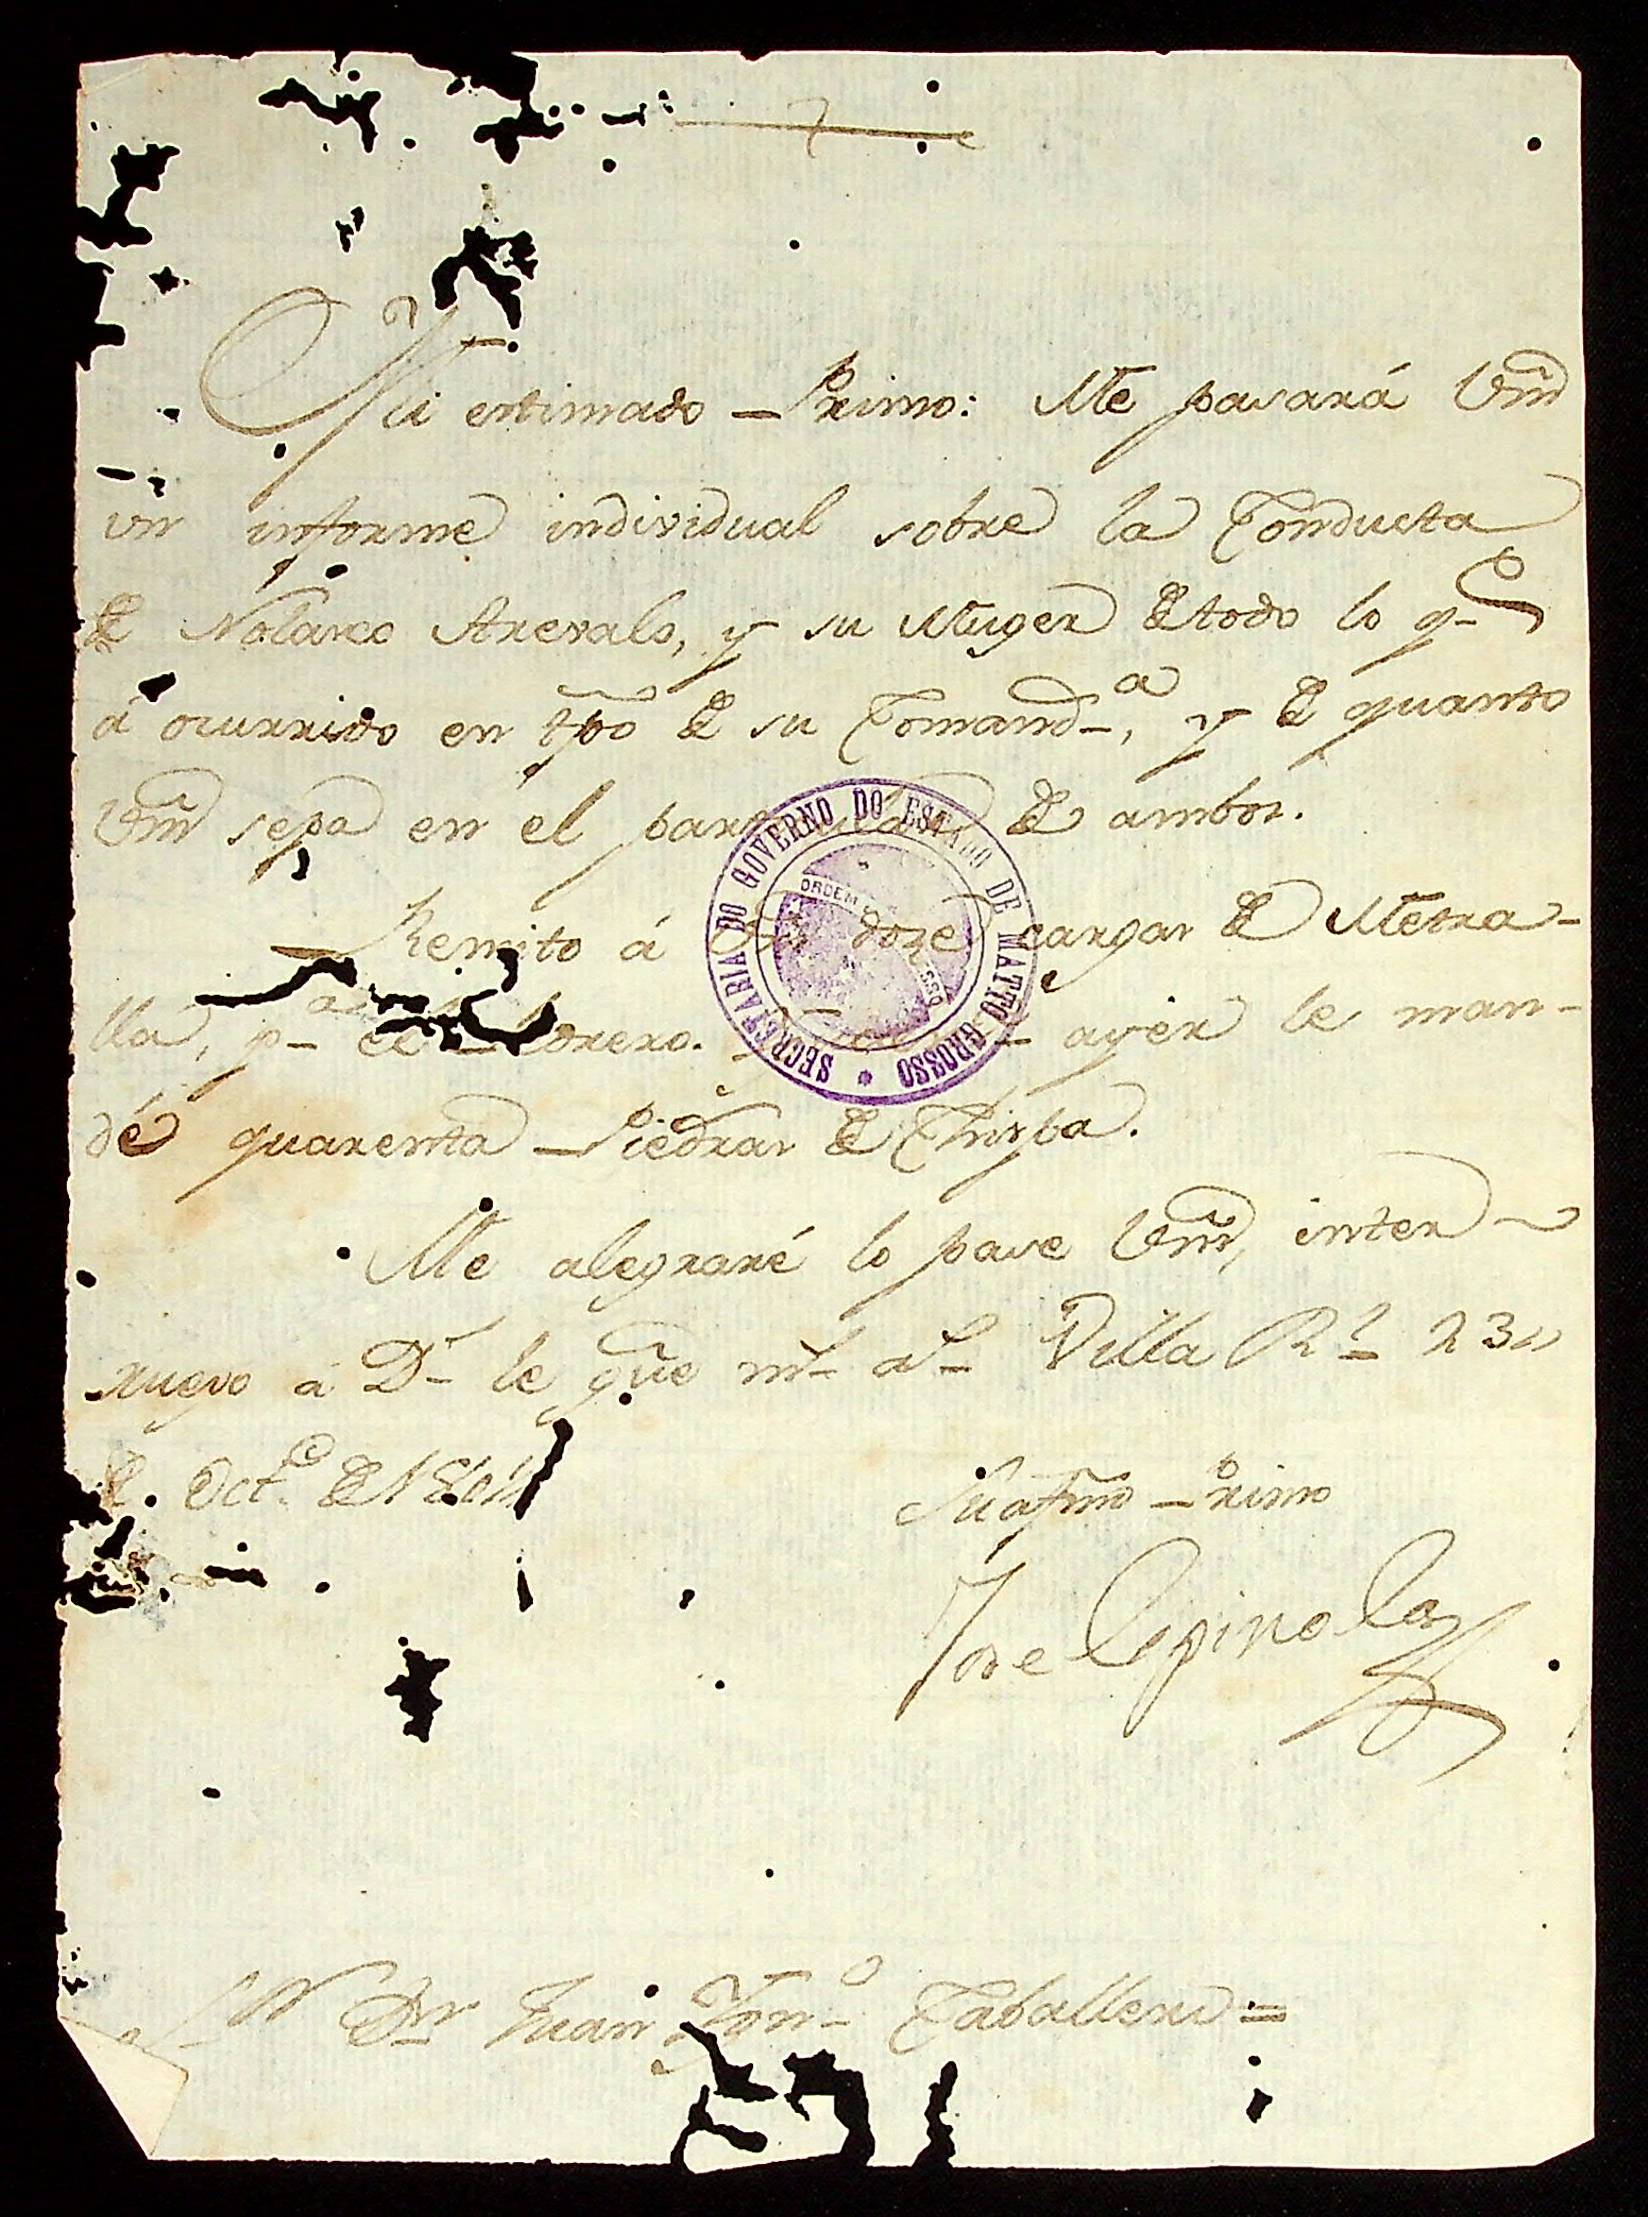 Mi estimado Primo: Me pasará Vm̃d
un informe individual sobre la Conducta
de Nolasco Arevalo, y su Muger de todo lo q.e
á ocurrido en tp̃o de su Comand.a, y de quanto
Vm̃d sepa en el particular de ambos.
Remito á doze cargas de Metra-
lla, p.a el ayer le man-
dé quarenta Piedras de Chispa.
Me alegraré lo pase Vm̃d, inter
ruego á D.s le gũe m.s a.s Villa R.l 23,,
de Oct.e de 1801
Su afmo Primo
Jose Espinola
S.or D.n Juan Ygn.o Caballero =
SECRETARIA DO GOVERNO DO ESTADO DE MATTO-GROSSO *
ORDEM